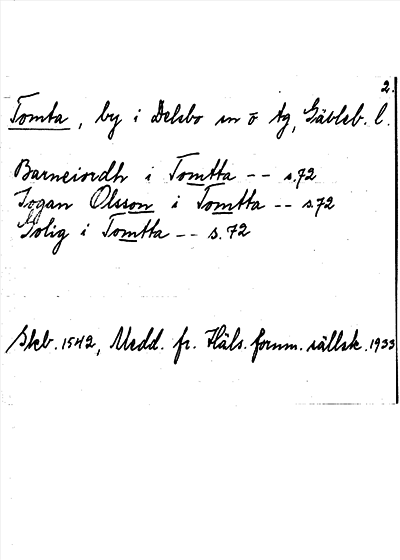 2.
Tomta, by i Delsbo sn o tg, Gävleb. l.
Barneiordh i Tomtta -- s.72
Jogan Olsson i Tomtta -- s.72
Solig i Tomtta -- s.72
Skb. 1542, Medd. fr. Häls. fornm. sällsk. 1933